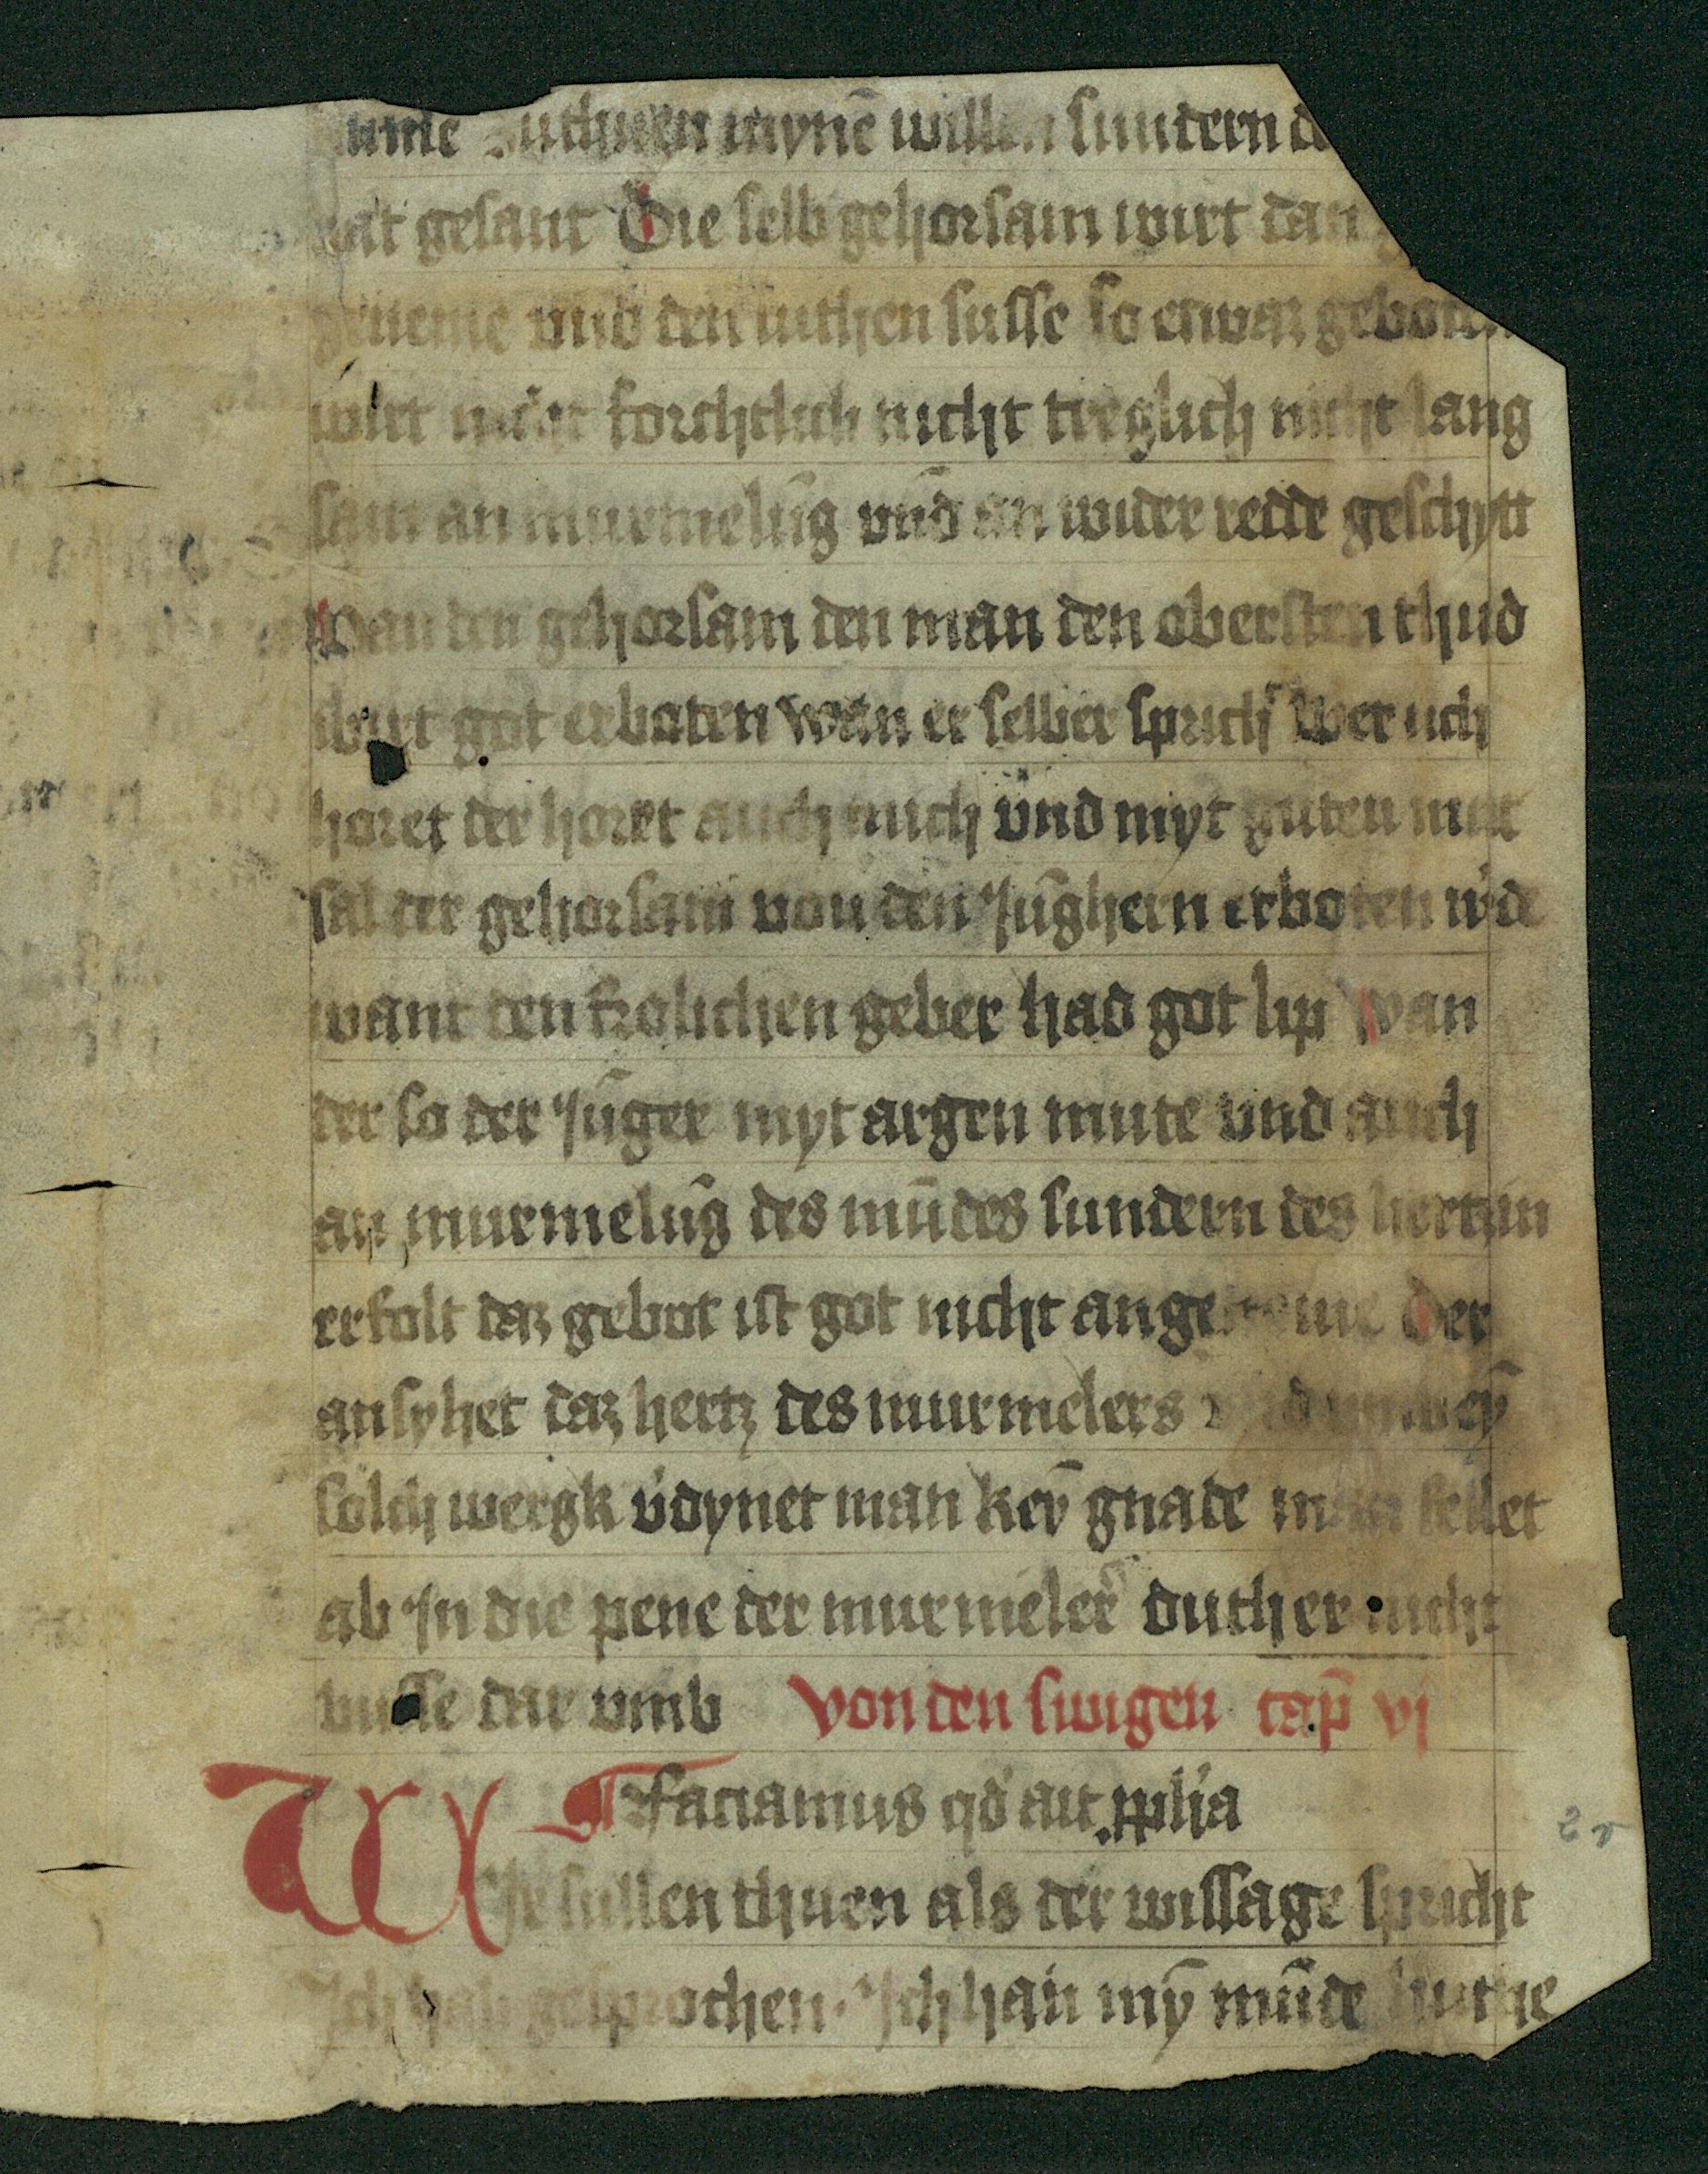 kume zuthuen mynē willen sundern d
hat gesant Die selb gehorsam wirt dan g
gneme vnd den luthen susse so etwaz geboten
wirt nicht forchtlich nicht treglich nicht lang
sam an murmelūg vnd an wider redde geschytt
wan den gehorsam den man den obersten thud
wirt got erboten wan er selber sprich Wer uch
horet der horet auch mich vnd myt guten mut
sal der gehorsam von den Jūghern erboten w'de
want den frolichen geber had got lip wan
der so der Jūger myt argen mute vnd auch
an murmelūg des mūdes sundern des hertzin
erfolt daz gebot ist got nicht angeneme Der
ansyhet daz hertz des murmelers
solch wergk v'dynet man keȳ gnade man fellet
ab Jn die pene der murmeler duth er nicht
busse dar vmb von den swigen cap̄ vj
Faciamus qd' ait pplīa
Wir sullen thuen als der wissage spricht
Ich hab gesprochen Jch han mȳ mūde huthe
2 v